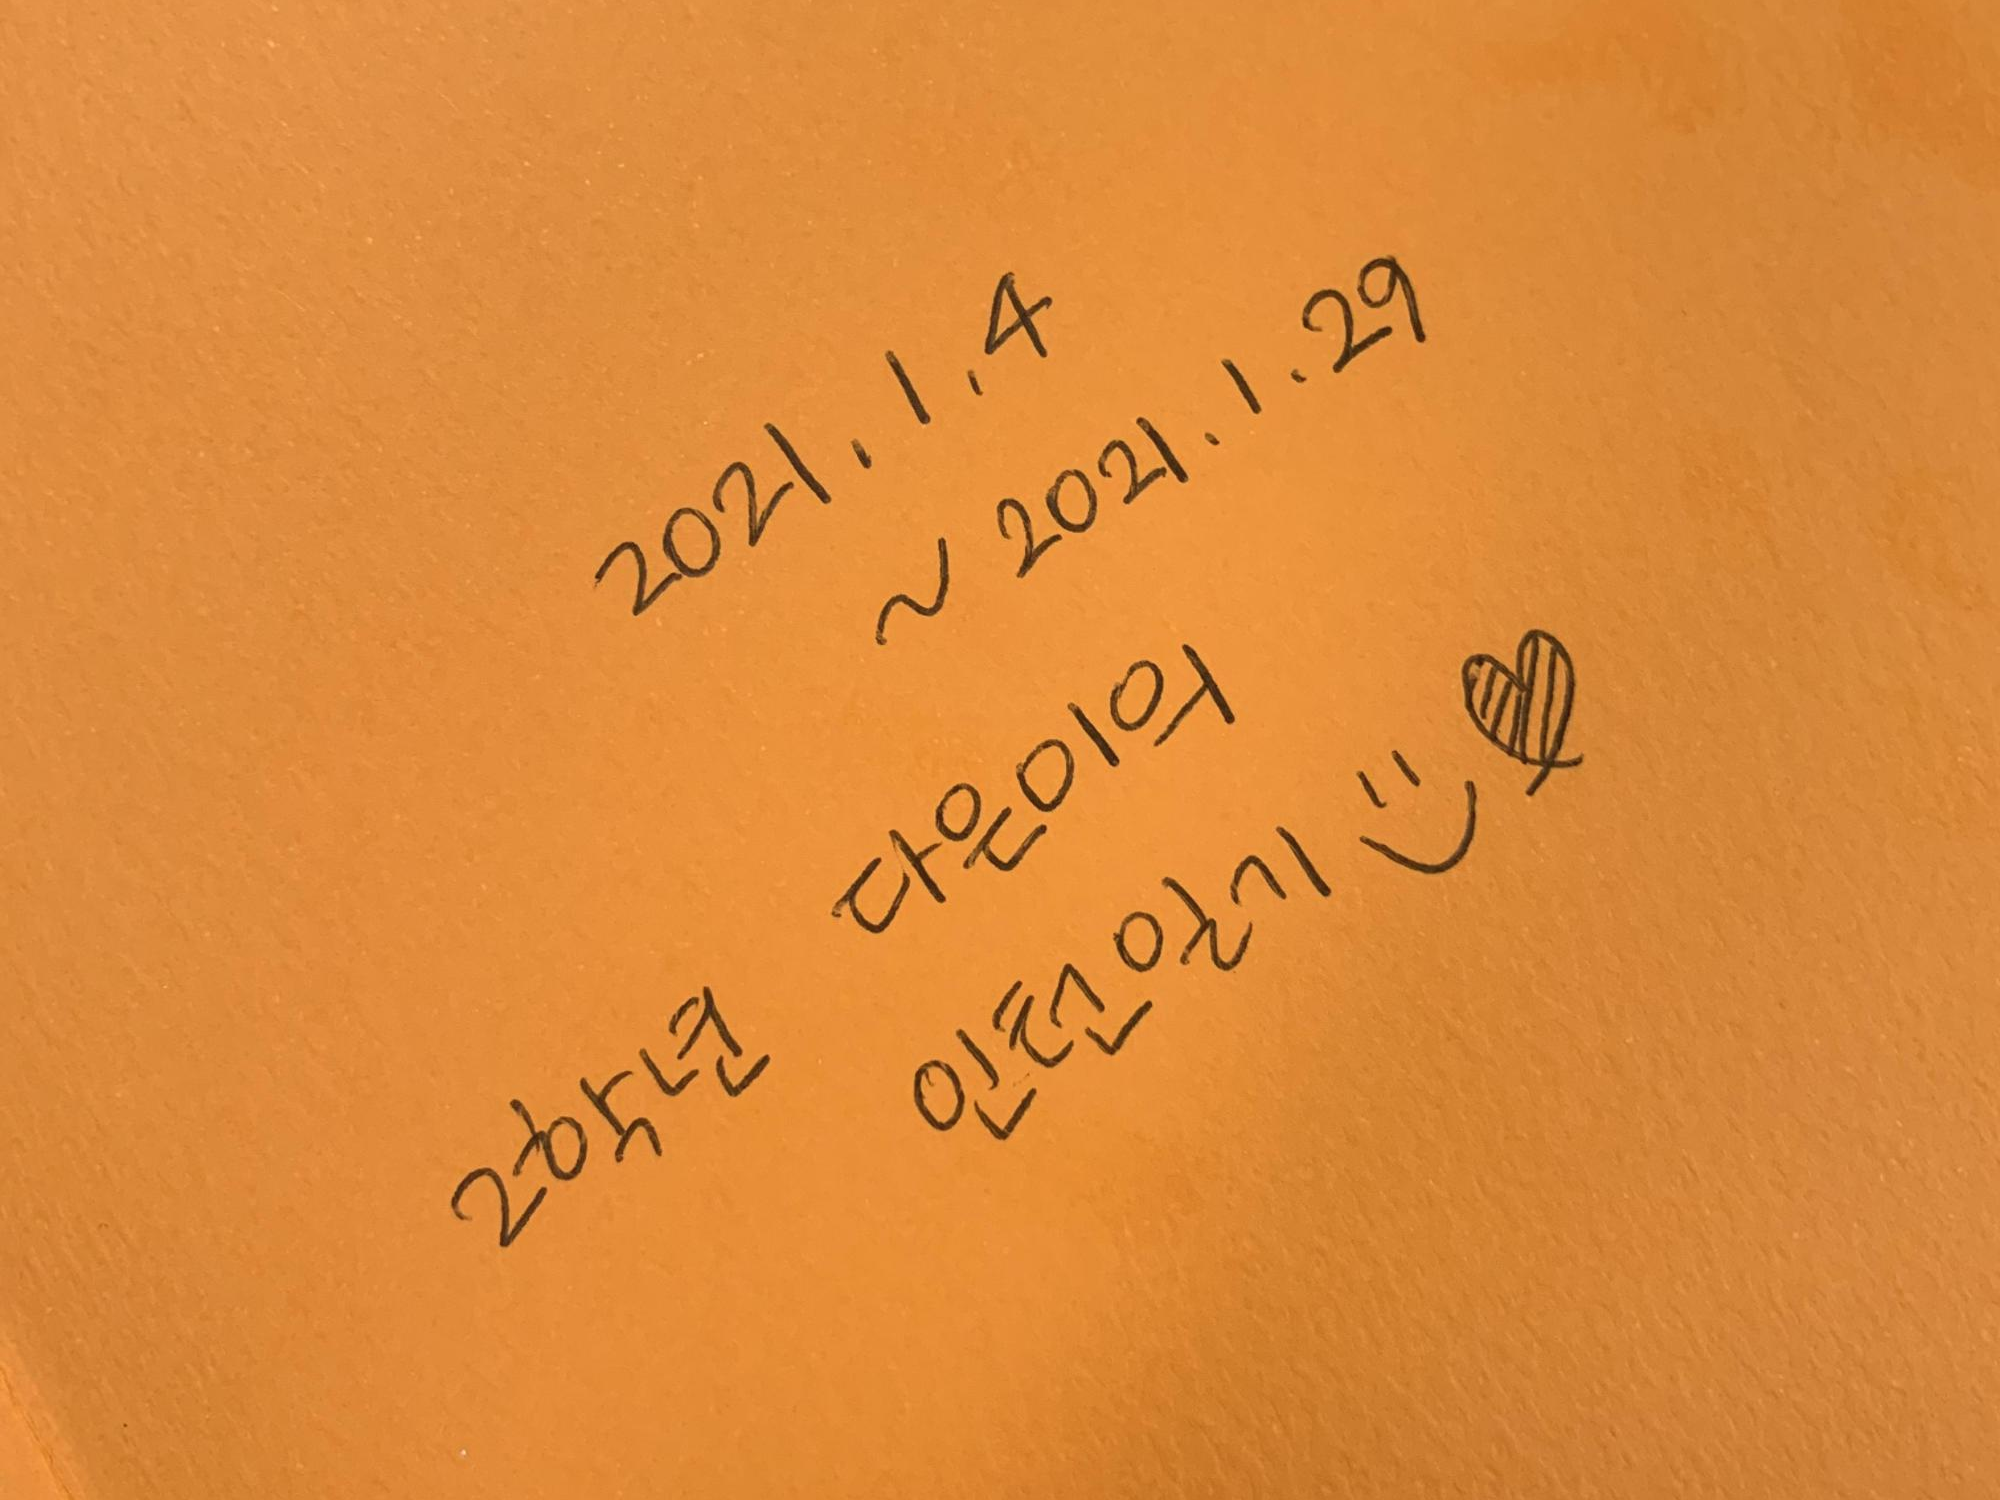 2021.1.4
~ 2021.1.29
2학년 다은이의
인천일기